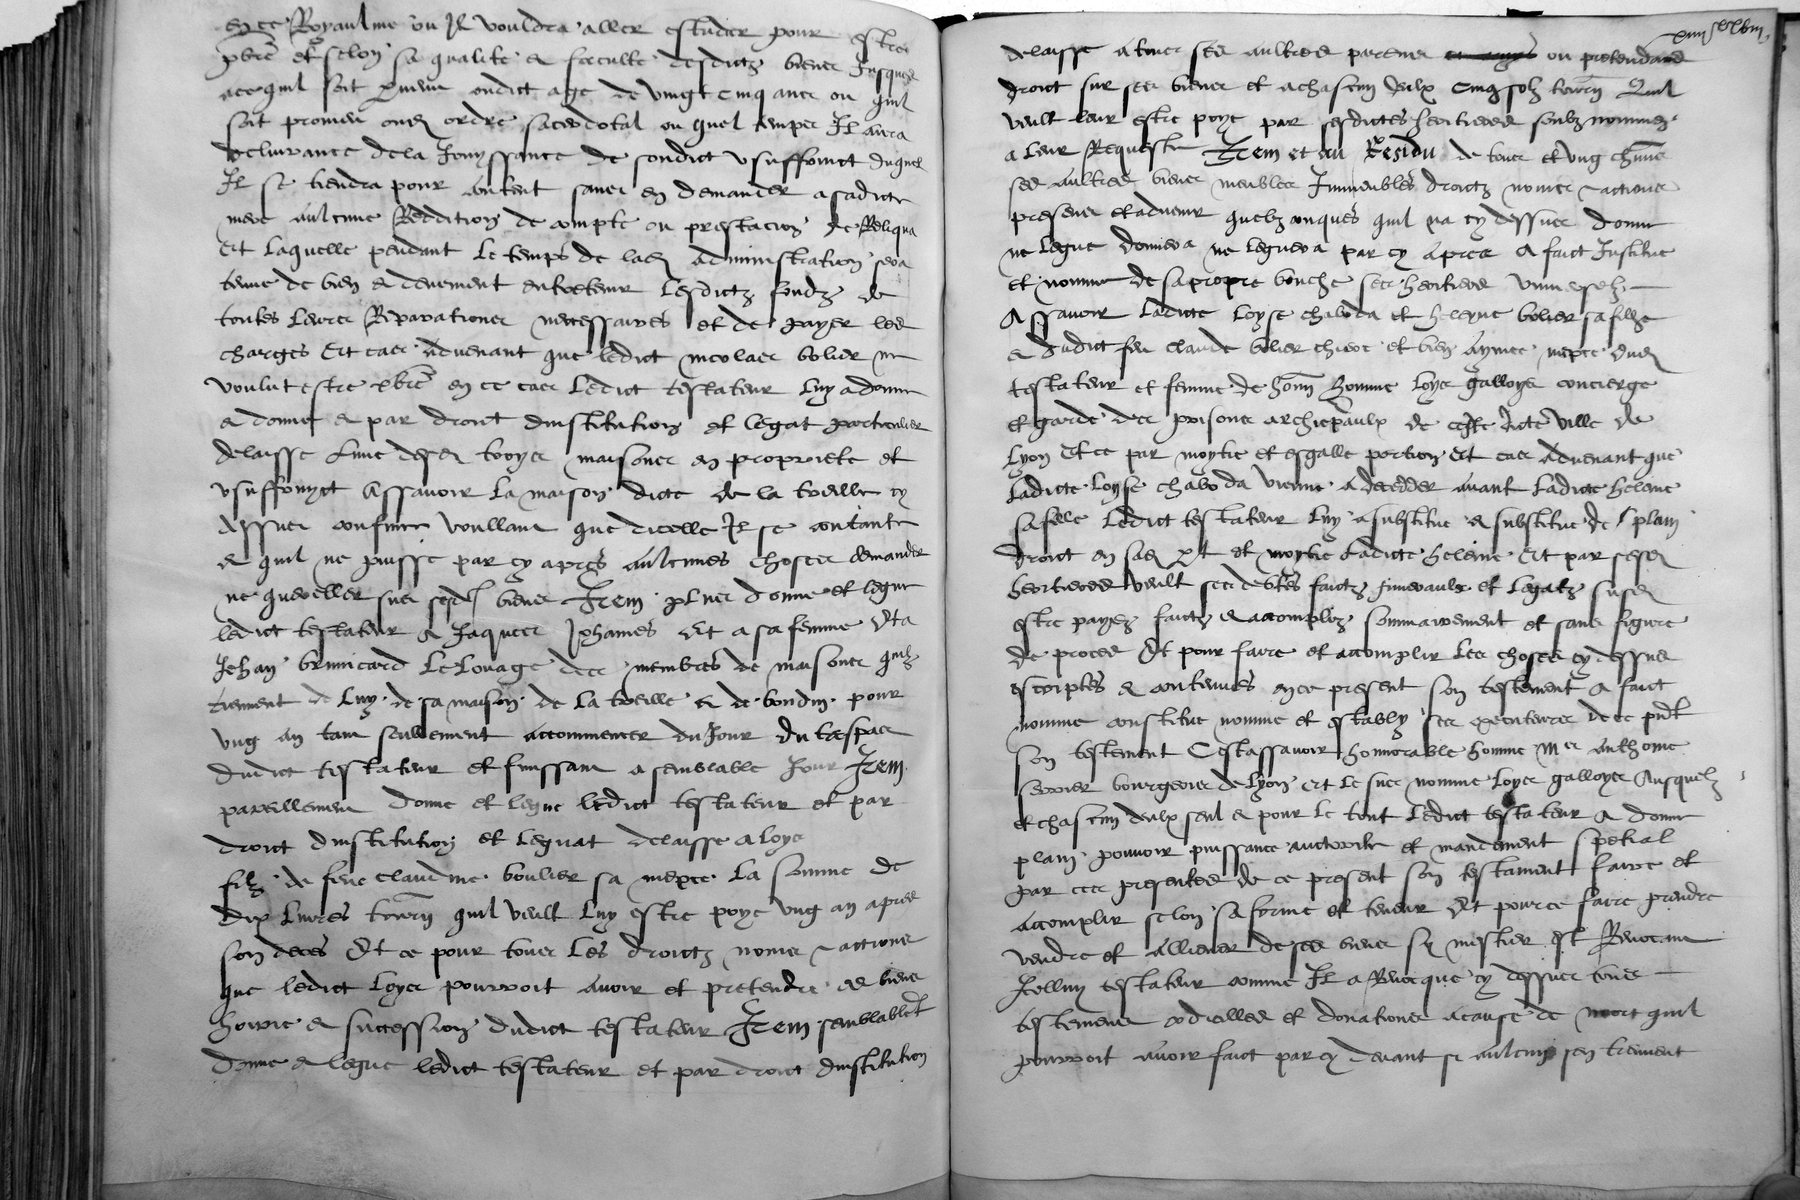 en ce Royaulme ou Il vouldra aller estudier pour estre
pbre et selon sa qualite & faculte desdictz biens Jusques
ace quil soit Parvenu oudict aage de vingt cinq ans ou quil
soit promeu oud ordre sacerdotal ou quel temps Il aura
delivrance dela Jouyssance de sondict usuffruict duquel
Il se tiendra pour content sans en demander a sadicte
mere aulcune Reddition de compte ou prestacion de Reliqua
Et laquelle pendant le temps de lad administration sera
tenue de bien & deuement entretenir lesdictz fondz de
toutes leurs Reparations necessaires et de payer les
charges Et cas advenant que ledict nicolas bolier ne
voulut estre pbre en ce cas ledict testateur luy a donne
& donne & par droit dinstitution et legat particulier
delaisse lune desd troys maisons en propriete et
usuffruyct Assavoir la maison dicte de la treille cy
dessus confinee voullant que dicelle Il se contante
& quil ne puisse par cy apres aulcunes choses demander
ne quereller sur sesd biens Item plus donne et legue
ledict testateur a Jaques Et a sa femme
Jehan brunicard le louage des membres de maisons quilz
tiennent de luy de sa maison de la treille & de bondin pour
ung an tant seullement accommencer du Jour du trespas
dudict testateur et finissant a semblable Jour Item
pareillement donne et legue ledict testateur et par
droit dinstitution et leguat delaisse a loys
filz de feue claudine boulier sa niepce la somme de
dix livres tourn quil veult luy estre poye ung an apres
son deces Et ce pour tous les droictz noms & actions
que ledict loys pourroit avoir et pretendre es biens
hoirie & succession dudict testateur Item semblablet
donne & legue ledict testateur et par droit dinstitution
delaisse a tous ses aultres parens ou pretendans
droit sur ses biens et a chascun deulx cinq solz tourn Quil
veult leur estre poye par sesdictes heritieres soubz nommes
a leur Requeste Item et au Residu de tous et ung chune
ses aultres biens meubles Immeubles droictz noms & actions
presens et advenir quelz conques quil na cy dessus donne
ne legue donnera ne leguera par cy apres A faict Institue
et nomme de sa propre bouche ses heritieres universelz
Assavoir ladicte loyse chaboda et heleyne bolier sa fille
& dudict feu claude bolier chiere et bien aymee niepce dud
testateur et femme de hon homme loys galloys concierge
et garde des prisons archiepaulx de ceste dicte ville de
lyon Et ce par moytie et esgalle portion Et cas advenant que
ladicte loyse chaboda vienne a decedder avant ladicte heleine
sa fille ledict testateur luy a substitue & substitue de plain
droit en sad pt et moytie ladicte heleine Et par sesd
heritieres veult ses debtes faictz funeraulx et legatz susd
estre payez faictz & accomplis sommairement et sans figure
de proces Et pour faire et accomplir les choses cy dessus
escriptes & contenues en ce present son testement A faict
nomme constitue nomme et estably ses executeurs de ce pnt
son testement Cestassavoir honnorable homme mer anthoine
bourgeois de lyon et le sus nomme loys galloys Ausquelz
et chascun deulx seul & pour le tout ledict testateur A donne
plain povoir puissance auctorite et mandement special
par ces presentes de ce present son testament faire et
accomplir selon sa forme et teneur Et pour ce faire prendre
vendre et alliener de ses biens sy mestier est Revocant
Icelluy testateur comme Il a Revoque cy dessus tous
testemens codicilles et donations a cause de mort quil
pourroit avoir faict par cy devant si aulcuns sen treuvent